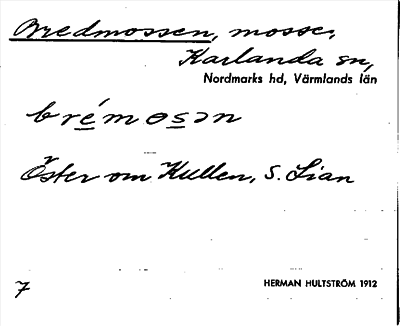 Bredmossen, mosse,
Karlanda sn,
Nordmarks hd, Värmlands län
brémosən
Öster om Kullen, S. Lian
7
HERMAN HULTSTRÖM 1912